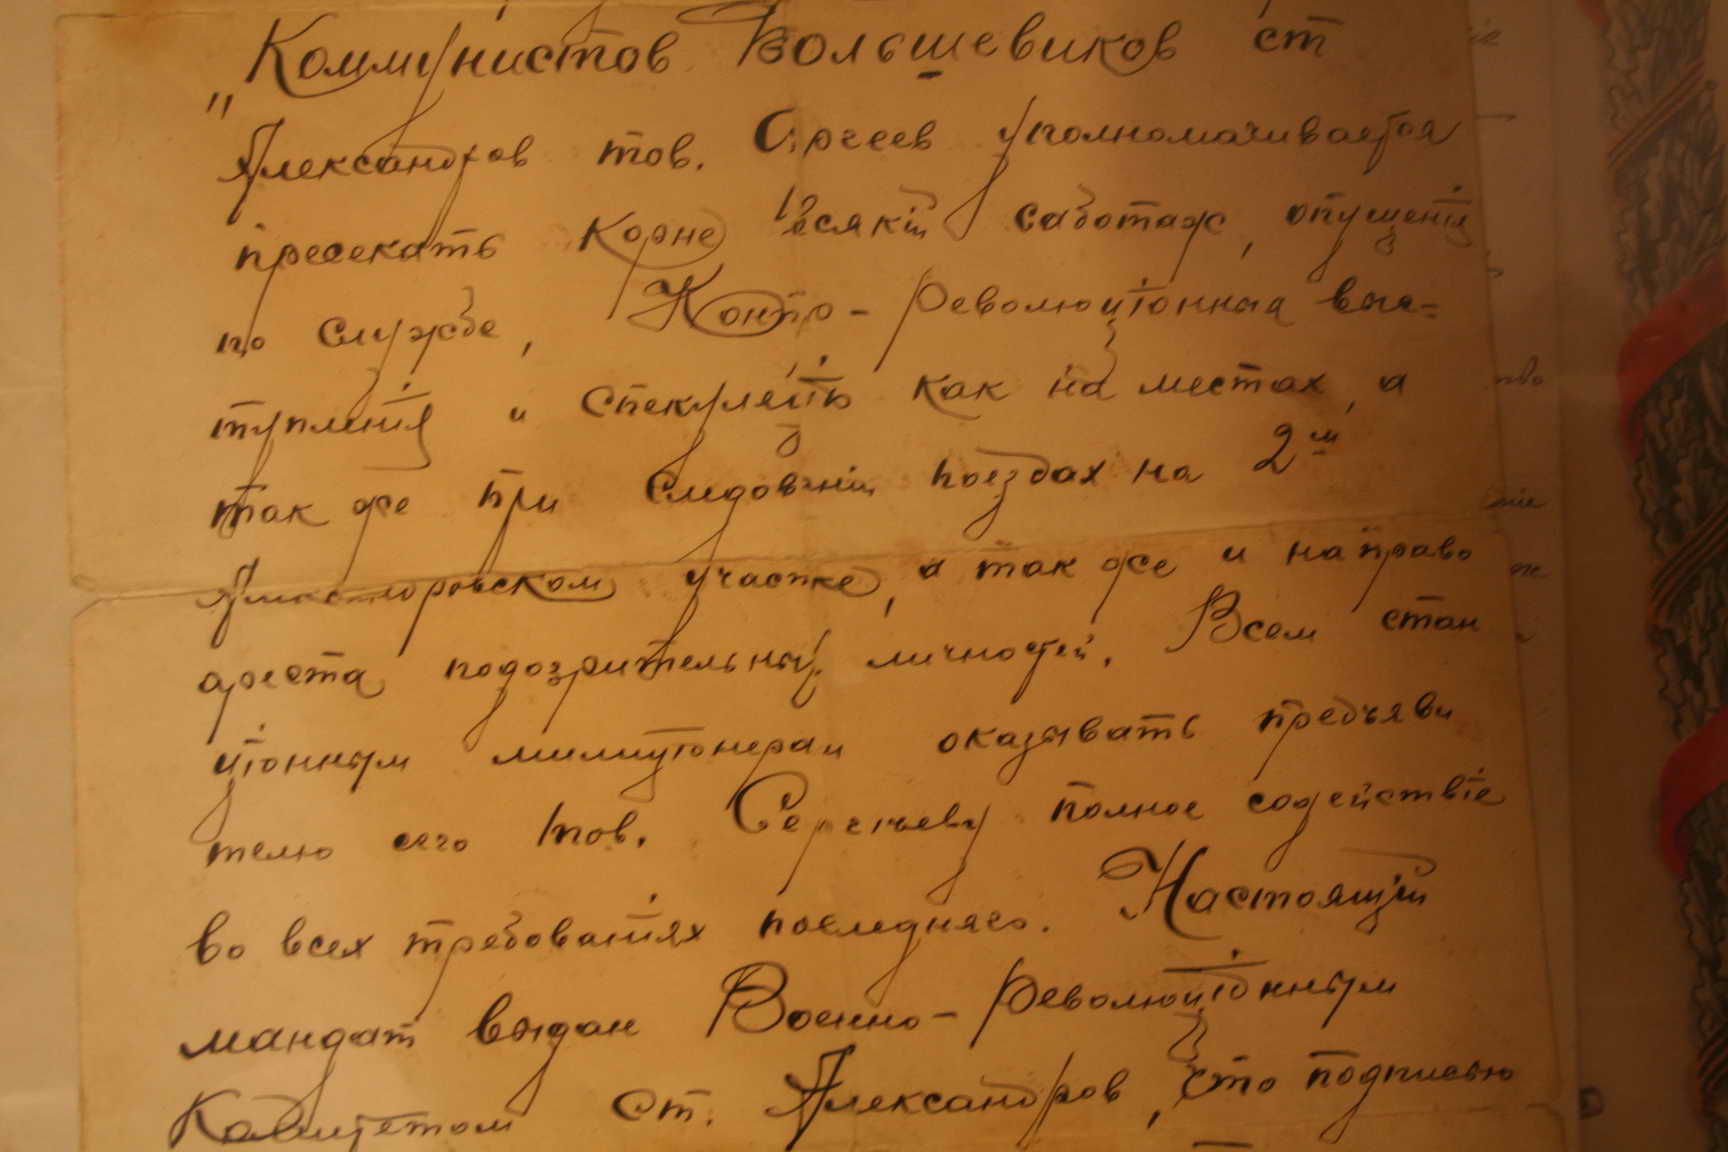 „Коммунистов Большевиков ст
Александров тов. Сргеев уполномачивается
пресекать корне всякiй саботаж, опущенiя
по службе, Контр-революцiонныя выс-
тупленiя и спекуляцiю как на местах, а
так же при следованiи поездах на 2м
Александровском участке, а так же и направо
ареста подозрительных личностей. Всем стан
цiонным милицiонерам оказывать предъяви
телю сего тов. Сергееву полное содействiе
во всех требованiях последняго. Настоящiй
мандат выдан Военно-Революцiонным
Комитетом ст. Александров, что подписью